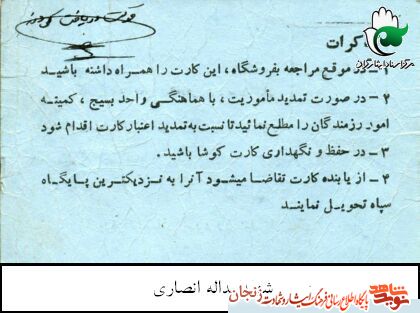 مرکز اسناد ایثارگران
کرات
۱ - در موقع مراجعه بفروشگاه، این کارت را همراه داشته باشید
۲ - در صورت تمدید مأموریت، با هماهنگی واحد بسیج، کمیته
امور رزمندگان را مطلع نمائید تا نسبت به تمدید اعتبار کارت اقدام شود
۳ - در حفظ و نگهداری کارت کوشا باشید.
۴ - از یابنده کارت تقاضا میشود آنرا به نزدیکترین پایگاه
سپاه تحویل نمایند
یداله انصاری
زنجان
نوید شاهد
پایگاه اطلاع رسانی فرهنگ ایثار و شهادت